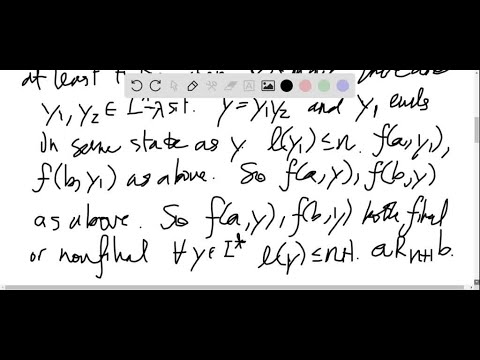 at least
y₁, y₂ ∈ I* - λ s.t. y = y₁y₂ and y₁ ends
in same state as y. l(y₁) ≤ n. f(a, y₁),
f(b, y₁) as above. So f(a, y), f(b, y)
as above. So f(a, y), f(b, y) both final
or nonfinal ∀ y ∈ I* l(y) ≤ n+1. a R_{n+1} b.